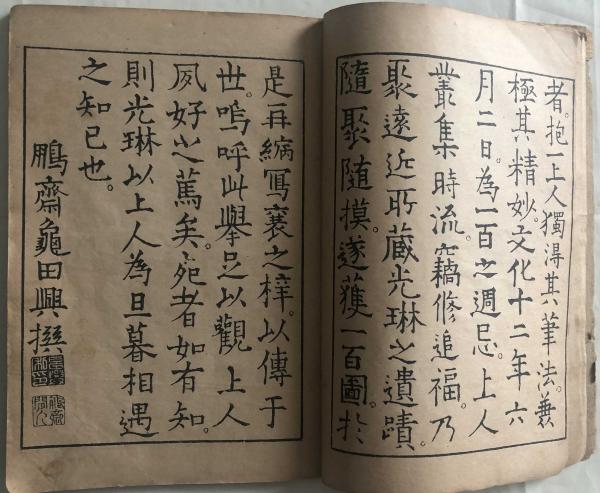 者。抱一上人獨得其筆法。兼
極其精妙。文化十二年六
月二日。為一百之週忌。上人
叢集時流。竊修追福。乃
聚遠近所藏光琳之遺蹟。
隨聚隨摸。遂獲一百圖。於
是再縮寫裒之梓。以傳于
世。嗚呼此擧足以觀上人
夙好之篤矣。死者如有知。
則光琳以上人為旦暮相遇
之知己也。
鵬齋龜田興撰